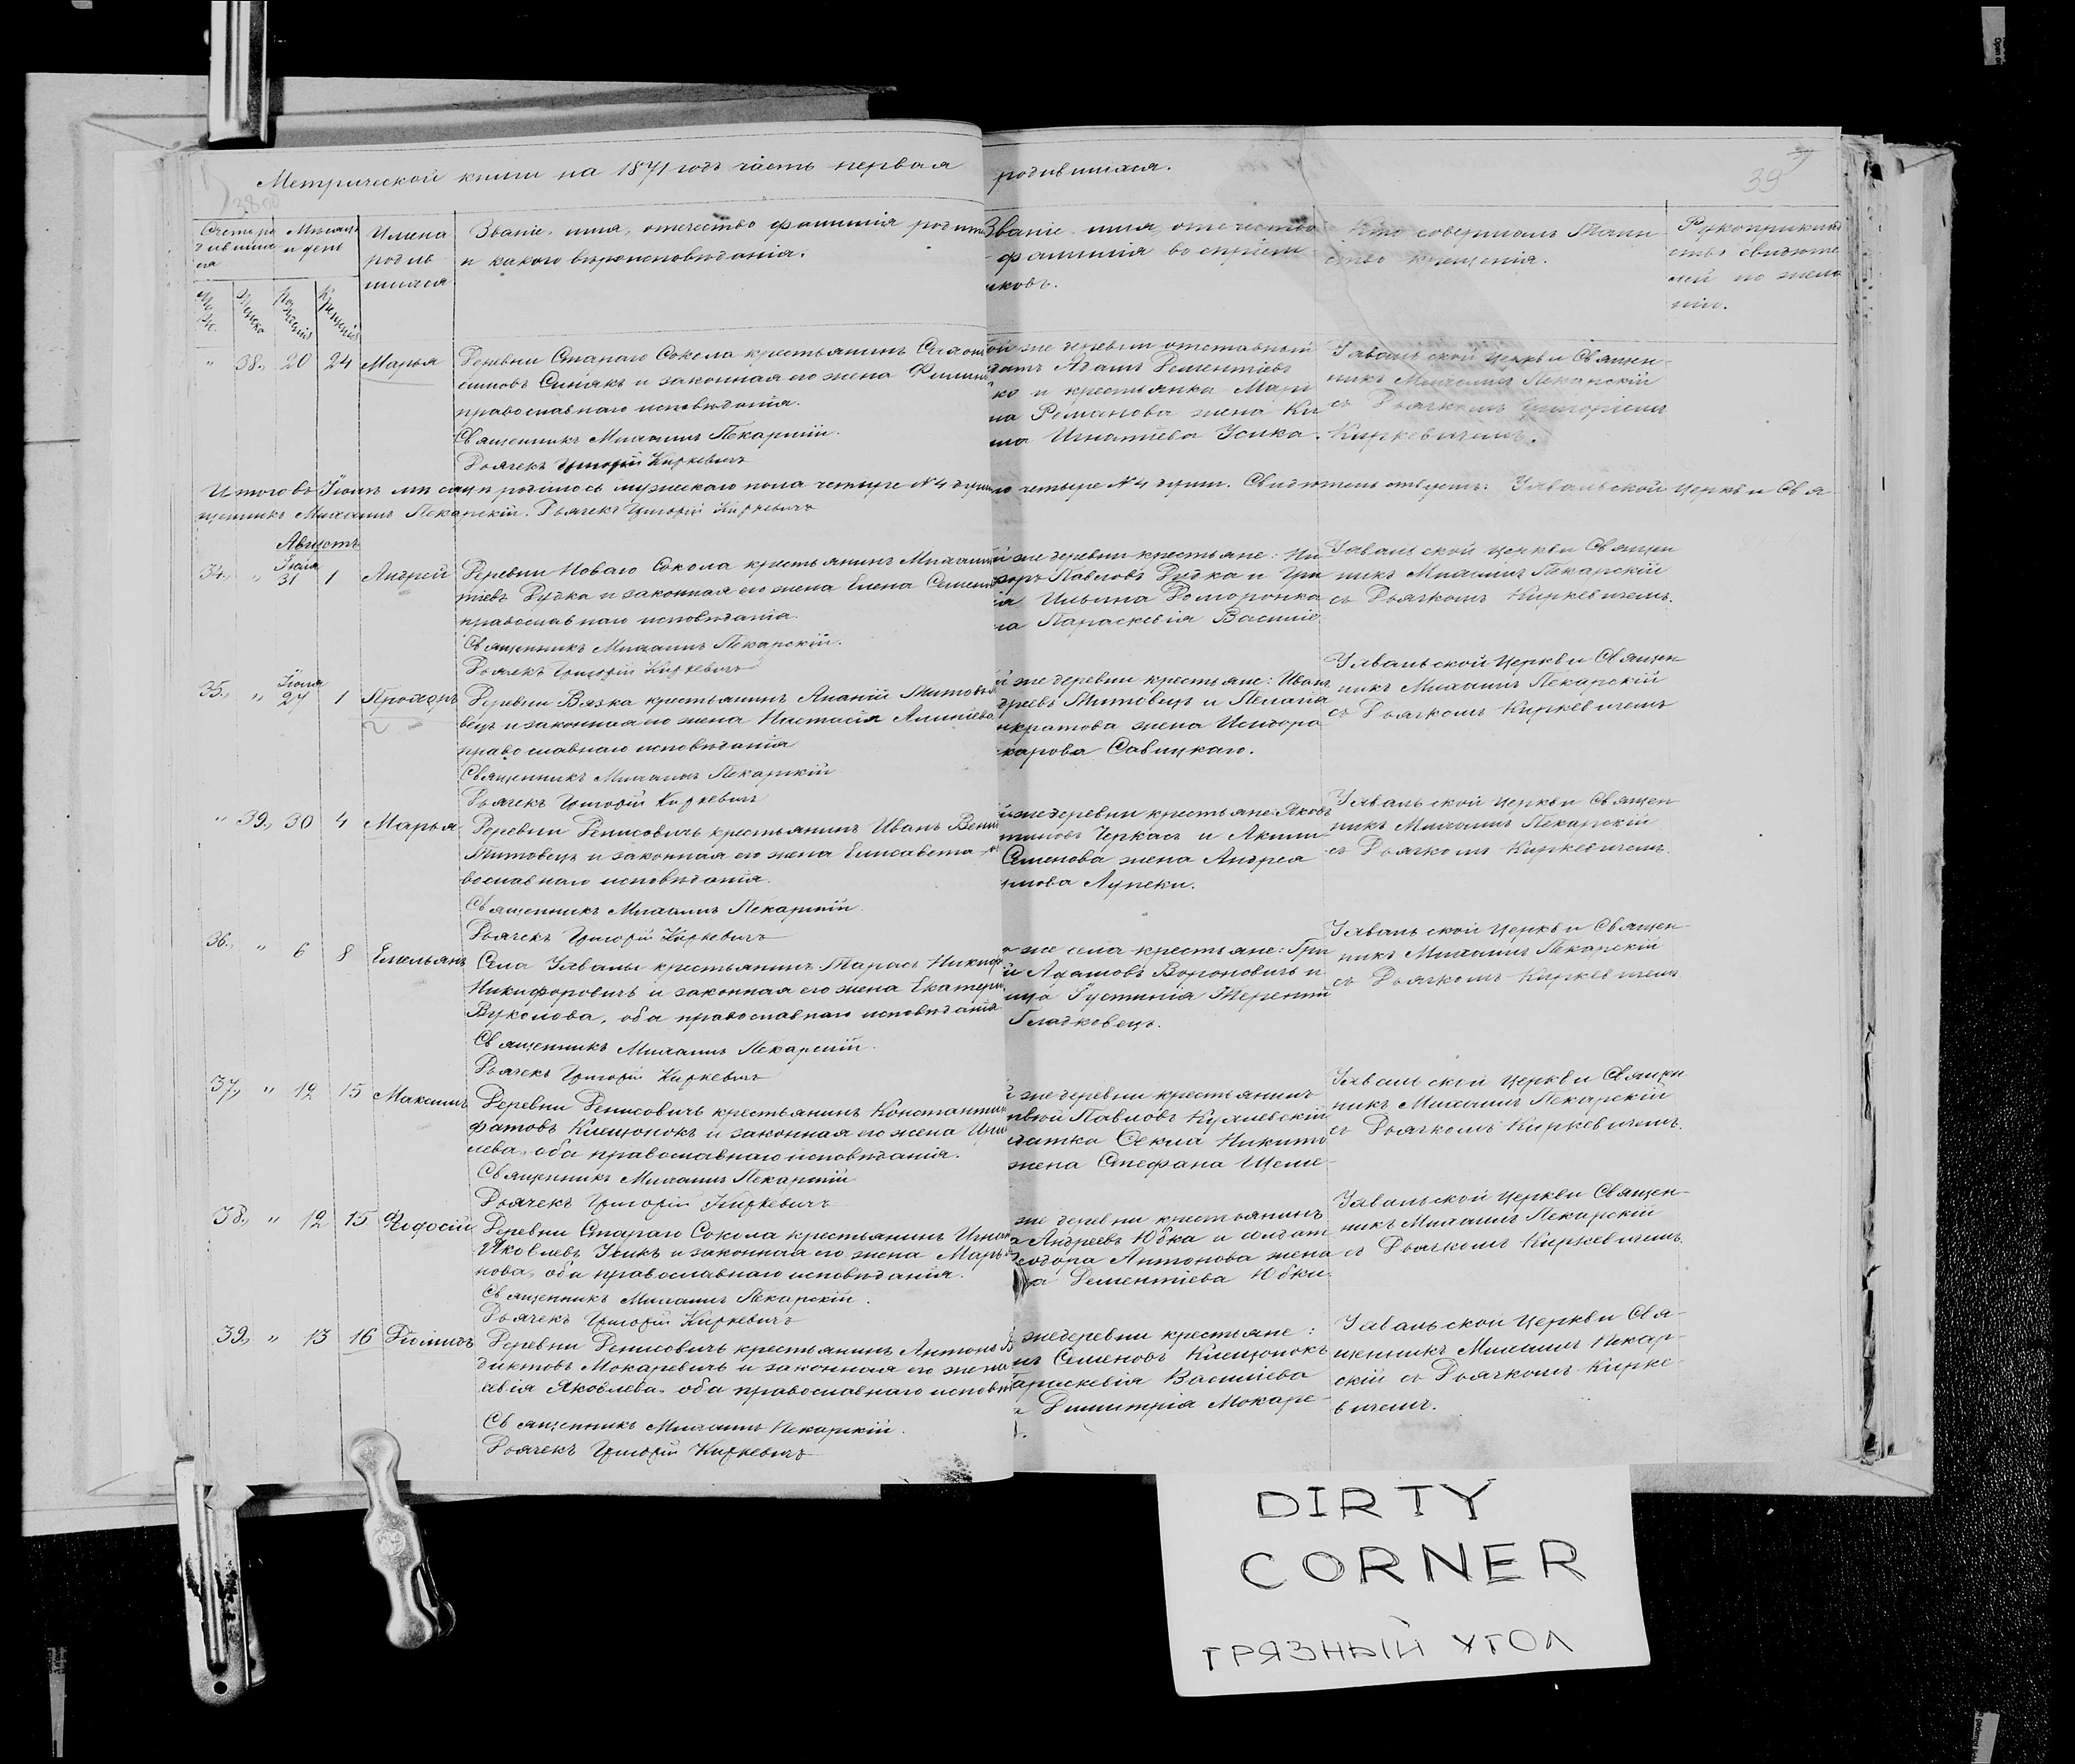 Метрической книги на 1871 годъ часть первая родившихся.
39
Имена родив шихся
Званіе, имя, отечество фамилія родит
и какого вѣроисповѣданія.
Званіе имя, отечество
фамилія воспріем
иковъ.
Кто совершалъ Таин
ство крещенія.
Рукоприклад
ство свидѣте
лей по жела
нію.
" 38., 20 24 Марья
Деревни Стараго Сокола крестьянинъ
Синякъ и законная его жена
православнаго исповѣданія.
Священникъ Михаилъ Пекарскій.
Дьячекъ Григорій Киркевичъ
ой же деревни отставный
датъ Адамъ Дементіевъ
ко и крестьянка Мари
на Романова жена Ки
Игнатіева Усика.
Священ-
никъ Михаилъ Пекарскій
съ Дьячкомъ Григоріемъ
Киркевичемъ.
Итого въ Іюлѣ мѣсяцѣ родилось мужескаго пола четыре № 4 душ
четыре № 4 душъ. Свидѣтельствуетъ: церкви Свя-
щенникъ Михаилъ Пекарскій. Дьячекъ Григорій Киркевичъ
Августъ
34., " Іюля 31 1 Андрей
Деревни Новаго Сокола крестьянинъ Михаилъ
тіевъ Дудка и законная его жена Елена Семен
православнаго исповѣданія.
Священникъ Михаилъ Пекарскій.
Дьячекъ Григорій Киркевичъ
й же деревни крестьяне: Ни
Павловъ Дудка и
Ильина
на Параскевія Василіе
церкви Священ
никъ Михаилъ Пекарскій
съ Дьячкомъ Киркевичемъ.
35., " Іюля 27 1
Деревни Вязка крестьянинъ Ананій Титовъ
вецъ и законная его жена Настасія
православнаго исповѣданія
Священникъ Михаилъ Пекарскій
Дьячекъ Григорій Киркевичъ
й же деревни крестьяне: Иванъ
дреевъ Титовецъ и Пелагія
нкратова жена Исидора
карова Савицкаго.
церкви Священ
никъ Михаилъ Пекарскій
съ Дьячкомъ Киркевичемъ
" 39., 30 4 Марья
Деревни Денисовичъ крестьянинъ Иванъ
Титовецъ и законная его жена Елисавета
вославнаго исповѣданія.
Священникъ Михаилъ Пекарскій
Дьячекъ Григорій Киркевичъ
же деревни крестьяне: Яковъ
Черкасъ и Акили
Семенова жена Андрея
Лупеки.
церкви Священ
никъ Михаилъ Пекарскій
съ Дьячкомъ Киркевичемъ.
36., " 6 8 Емельянъ
Села крестьянинъ Тарасъ Никифо
Никифоровичъ и законная его жена Екатери
Вуколова, оба православнаго исповѣданія
Священникъ Михаилъ Пекарскій.
Дьячекъ Григорій Киркевичъ
же села крестьяне: Гри
й Адамовъ Вороновичъ и
Іустинія Терентій
Гладковецъ.
церкви Священ-
никъ Михаилъ Пекарскій
съ Дьячкомъ Киркевичемъ
37., " 12 15 Максимъ
Деревни Денисовичъ крестьянинъ Константин
фатовъ Клещонокъ и законная его жена Ири
лева, оба православнаго исповѣданія.
Священникъ Михаилъ Пекарскій
Дьячекъ Григорій Киркевичъ
же деревни крестьянинъ
Павловъ
датка Секла Никити
жена Стефана
церкви Священ
никъ Михаилъ Пекарскій
съ Дьячкомъ Киркевичемъ.
38., " 12 15 Ѳеодосій
Деревни Стараго Сокола крестьянинъ Игнат
Яковлевъ Усикъ и законная его жена Марь
нова, оба православнаго исповѣданія.
Священникъ Михаилъ Пекарскій.
Дьячекъ Григорій Киркевичъ
же деревни крестьянинъ
Андреевъ Юбка и солдат
еодора Антонова жена
ра Дементіева Юбки.
церкви Священ-
никъ Михаилъ Пекарскій
съ Дьячкомъ Киркевичемъ.
39., " 13 16
Деревни Денисовичъ крестьянинъ Антонъ
диктовъ Мокаревичъ и законная его жена
евія Яковлева, оба православнаго исповѣ
Священникъ Михаилъ Пекарскій.
Дьячекъ Григорій Киркевичъ
же деревни крестьяне:
Семеновъ Клещонокъ
араскевія Василіева
Димитрія Мокаре-
церкви Свя-
щенникъ Михаилъ Пекар-
скій съ Дьячкомъ Кирке-
вичемъ.
DIRTY
CORNER
ГРЯЗНЫЙ УГОЛ